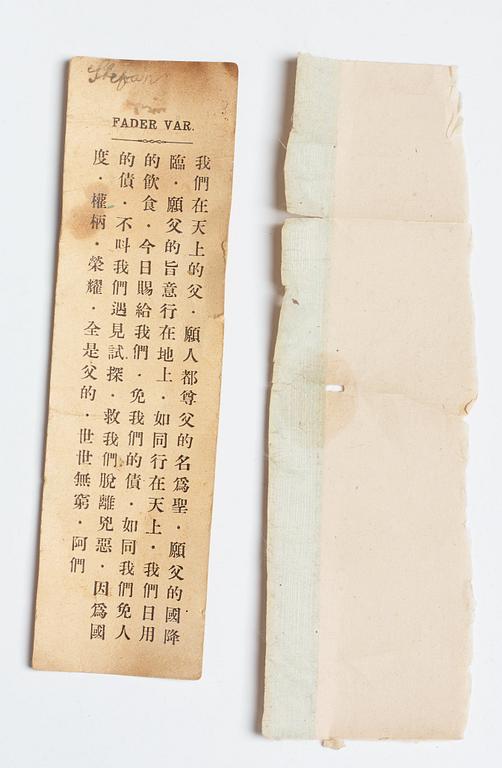 Stefan
FADER VAR.
我們在天上的父．願人都尊父的名爲聖．願父的國降
臨．願父的旨意行在地上．如同行在天上．我們日用
的飲食．今日賜給我們．免我們的債．如同我們免人
的債．不叫我們遇見試探．救我們脫離兇惡．因爲國
度．權柄．榮耀．全是父的．世世無窮．阿們